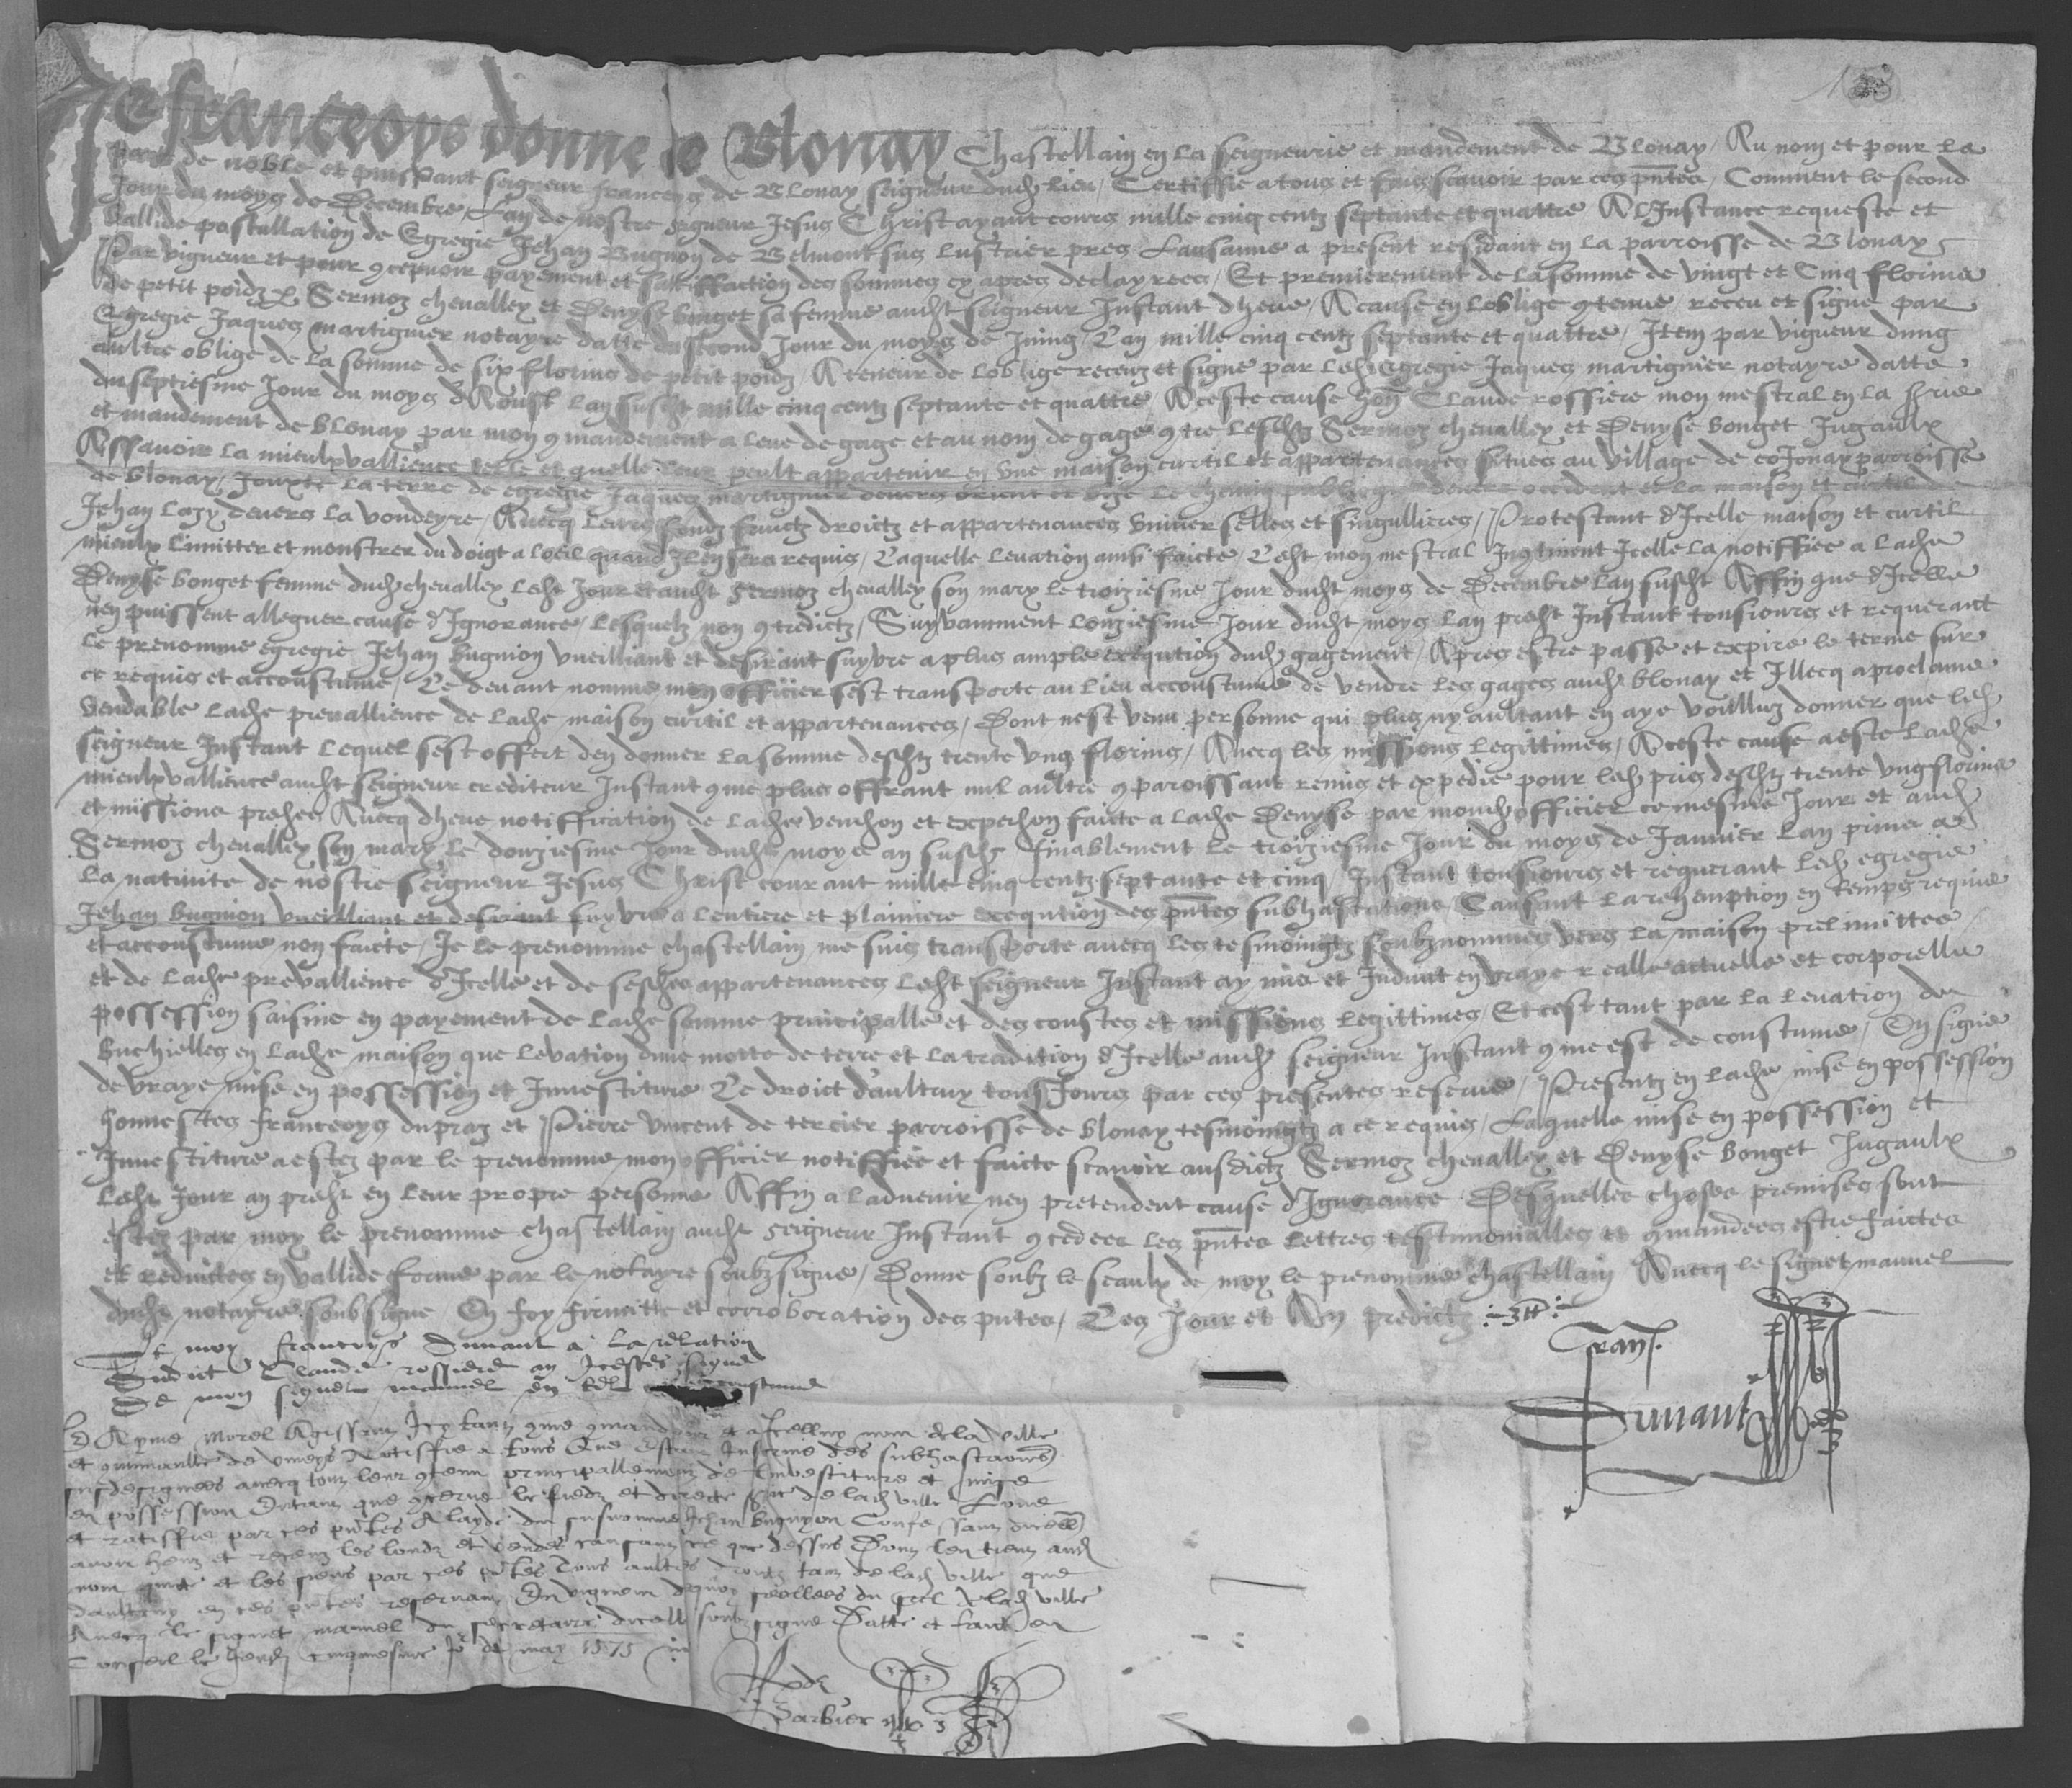 Je franceoys donne de Blonay Chastellain en la seigneurie et mandement de Blonay / Au nom et pour la
part de noble et puissant seigneur franceys de Blonay seigneur dudz lieu / Certiffie a tous et fais scavoir par ces pntes / Comment le second
Jour du moys de Decembre / Lan de nostre seigneur Jesus Christ ayant cours mille cinq centz septante et quattre Al Instance requeste et
vallide postullation de Egregie Jehan Bugnon de Belmont sus Lustrier pres Lausanne a present residant en la parroisse de Blonay /
Par vigueur et pour 9cepvoir payement et sattiffaction des sommes cy apres declayrees / Et premierement de la somme de vingt et Cinq florins
de petit poidz p Sermoz chevalley et Denyse bonget sa femme audit seigneur Instant dheue / A cause en loblige 9tenue receu et signe par
Egregie Jaques martignier notayre datte du second Jour du moys de Juing / Lan mille cinq centz septante et quattre / Item par vigueur dung
aultre oblige de la somme de six florins de petit poidz / A teneur de loblige receuz et signe par ledz egregie Jaques martignier notayre datte
du septiesme Jour du moys d Aoust lan susdt mille cinq centz septante et quattre / A ceste cause hon Claude rossiere mon mestral en la srie
et mandement de blonay par mon 9mandement a leve de gage et au nom de gage 9tre lesdtz Sermoz chevalley et Denyse bonget Jugaulx
Assavoir la mieulx vallience telle et quelle leur peult appartenir en une maison curtil et appartenances situes au village de cojonay parroisse
de blonay / Jouxte la terre de egregie Jaques martignier devers orient et bize le chemin publicque devers occident et la maison et curtil de
Jehan lazy devers la vondeyre / Avecq leurs fondz fruictz droictz et appartenances universelles et singullieres / Protestant d Icelle maison et curtil
mieulx limitter et monstrer du doigt a loeil quand Il en sera requis / Laquelle levation ainsi faicte / Ledt mon mestral In9tinent Icelle la notiffiee a ladte
Denyse bonget femme dudz chevalley ledt Jour et audt Sermoz chevalley son mary le troiziesme Jour dudt moys de Decembre lan susdt Affin que d Icelle
nen puissent alleguer cause d Ignorance / Lesquelz non 9tredictz / Suyvamment lonziesme Jour dudt moys lan predt Instant tousiours et requerant
le prenomme egregie Jehan bugnion vueilliant et desirant suyvre a plus ample exeqution dudz gagement / Apres estre passe et expire le terme sur
ce requis et accoustume / Le devant nomme mon officier sest transporte au lieu accoustume de vendre les gages audz blonay et Illecq a proclame
vendable ladte prevallience de ladte maison curtil et appartenances / Dont nest venu personne qui plus ny aultant en aye voulluz donner que ledz
seigneur Instant lequel sest offert den donner la somme desdtz trente ung florins / Avecq les missions legittimes / A ceste cause a este ladte
mieulx vallience audt seigneur crediteur Instant 9me plus offrant nul aultre 9paroissant remis et expedie pour ledz pris desdtz trente ung florins
et missions predtes Avecq dheue notiffication de ladte vendion et expedion faicte a ladte Denyse par mondz officier ce mesme Jour et audz
Sermoz chevalley son mary le douziesme Jour dudt moys an susdt finablement le troiziesme Jour du moys de Janvier Lan prins a
la nativite de nostre seigneur Jesus Christ courant mille cinq centz septante et cinq / Instant tousiours et requerant ledz egregie
Jehan bugnion vueilliant et desirant suyvre a lentiere et plainiere exeqution des pntes subhastations / Causant la rehemption en temps requis
et accoustume non faicte / Je le prenomme chastellain me suis transporte avecq les tesmoingtz soubznommes vers la maison prelimittee /
et de ladte prevallience d Icelle et de sesdtes appartenances ledt seigneur Instant ay mis et Induict en vraye realle actuelle et corporelle
possession saisine en payement de ladte somme principalle et des coustes et missions legittimes / Et cest tant par la levation de
buchielles en ladte maison que levation dune motte de terre et la tradition d Icelle audz seigneur Instant 9me est de coustume / En signe
de vraye mise en possession et Investiture Le droict daultruy tousjours par ces presentes reserve / Presentz en ladte mise en possession
honnestes franceoys dupraz et Pierre vincent de tercier parroisse de blonay tesmoingtz a ce requis / Laquelle mise en possession et
Investiture a estez par le prenomme mon officier notiffiee et faicte scavoir ausdictz Sermoz chevalley et Denyse bonget Jugaulx
ledt Jour an predt en leur propre personne Affin a ladvenir nen pretendent cause d Ignorance Desquelles choses premises sont
estez par moy le prenomme chastellain audt seigneur Instant 9cedees les pntes lettres testimonialles et 9mandees estre faictes
et redvittes en vallide forme par le notayre soubzsigne / Donne soubz le seaulx de moy le prenomme chastellain Avecq le signet manuel
dudt notayre soubsigne En foy firmitte et corroboration des pntes / Les Jour et An predictz
Et moy francoys Dunant a la relation
Dudict Claude rossiere ay Icestes signe
De mon signet manuel en tel accoustume
Franc.
Dunant
Aymé Morel Agissant
et 9munaulte de vevey Notiffie a tous Que
susdesignees avecq tout leur 9tenu principallement de linvestiture et mise
en possession Entant que 9cerne le fiedz et directe srie de ladz ville Loue
et ratiffie par ces pntes A layde du susnomme Jehan bugnyon Confessant
avoir heuz et receuz les laudz et vendes causant ce que dessus Dont len tient audz
nom quitte et les siens par ces pntes Tous aultres droictz tant de ladz ville que
daultruy en ces pntes reservant En vigueur dequoy scellees du scel de ladz ville
Avecq le signet manuel du secretaire dicelle soubzsigne Datte et faict en
Conseil le Jeudz cinquiesme Jr de may 1575
Barbier